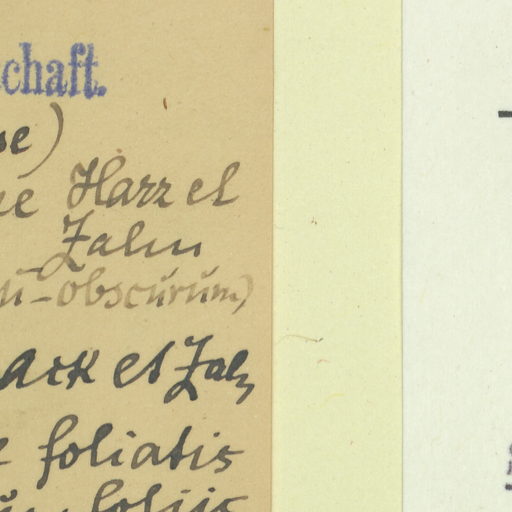 chaft.
se)
ne Harz et
Zahn
ü-obscürüm)
arx et Zahn
foliatis
foliis